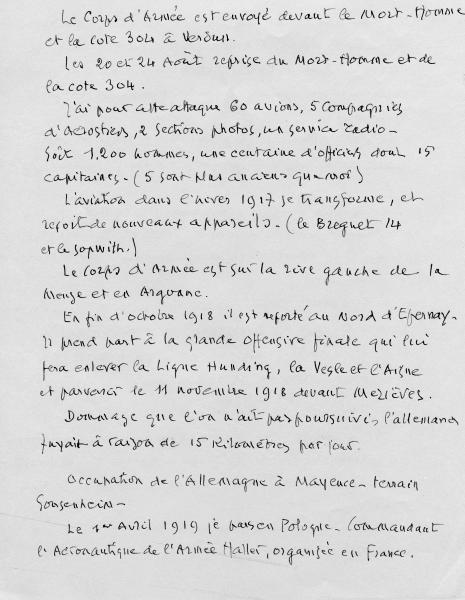 Le Corps d'Armée est envoyé devant le Mort-Homme
et la cote 304 à Verdun.
Les 20 et 24 Août reprise du Mort-Homme et de
la cote 304.
J'ai pour cette attaque 60 avions, 5 Compagnies
d'aérostiers, 2 sections photos, un service radio-
Soit 1,200 hommes, une centaine d'officiers dont 15
capitaines. (5 sont plus anciens que moi)
L'aviation dans l'hiver 1917 se transforme, et
reçoit de nouveaux appareils. (le Breguet 14
et le sopwith.)
Le Corps d'Armée est sur la rive gauche de la
Meuse et en Argonne.
En fin d'octobre 1918 il est reporté au Nord d'Epernay.
Il prend part à la grande offensive finale qui lui
fera enlever la Ligne Hunding, la Vesle et l'Aisne
et parvenir le 11 novembre 1918 devant Mezières.
Dommage que l'on n'ait pas poursuivi, l'allemand
fuyait à raison de 15 Kilomètres par jour.
Occupation de l'Allemagne à Mayence - terrain
Gonsenheim -
Le 1er Avril 1919 je passe en Pologne - Commandant
l'Aéronautique de l'Armée Haller, organisée en France.